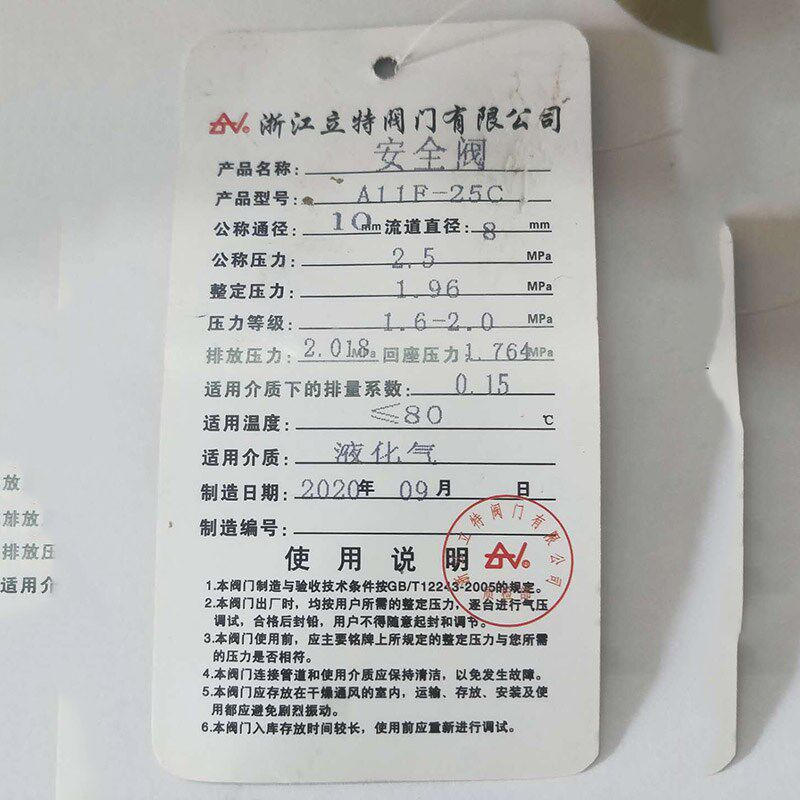 浙江立特阀门有限公司
产品名称: 安全阀
产品型号: A11F-25C
公称通径: 10 mm 流道直径: 8 mm
公称压力: 2.5 MPa
整定压力: 1.96 MPa
压力等级: 1.6-2.0 MPa
排放压力: 2.018 MPa 回座压力: 1.764 MPa
适用介质下的排量系数: 0.15
适用温度: ≤80 ℃
适用介质: 液化气
制造日期: 2020年 09月 日
制造编号:
使用说明
浙江立特阀门有限公司
1.本阀门制造与验收技术条件按GB/T12243-2005的规定。
2.本阀门出厂时，均按用户所需的整定压力，逐台进行气压
调试，合格后封铅，用户不得随意起封和调节。
3.本阀门使用前，应主要铭牌上所规定的整定压力与您所需
的压力是否相符。
4.本阀门连接管道和使用介质应保持清洁，以免发生故障。
5.本阀门应存放在干燥通风的室内，运输、存放、安装及使
用都应避免剧烈振动。
6.本阀门入库存放时间较长，使用前应重新进行调试。
放
排放
排放压
适用介